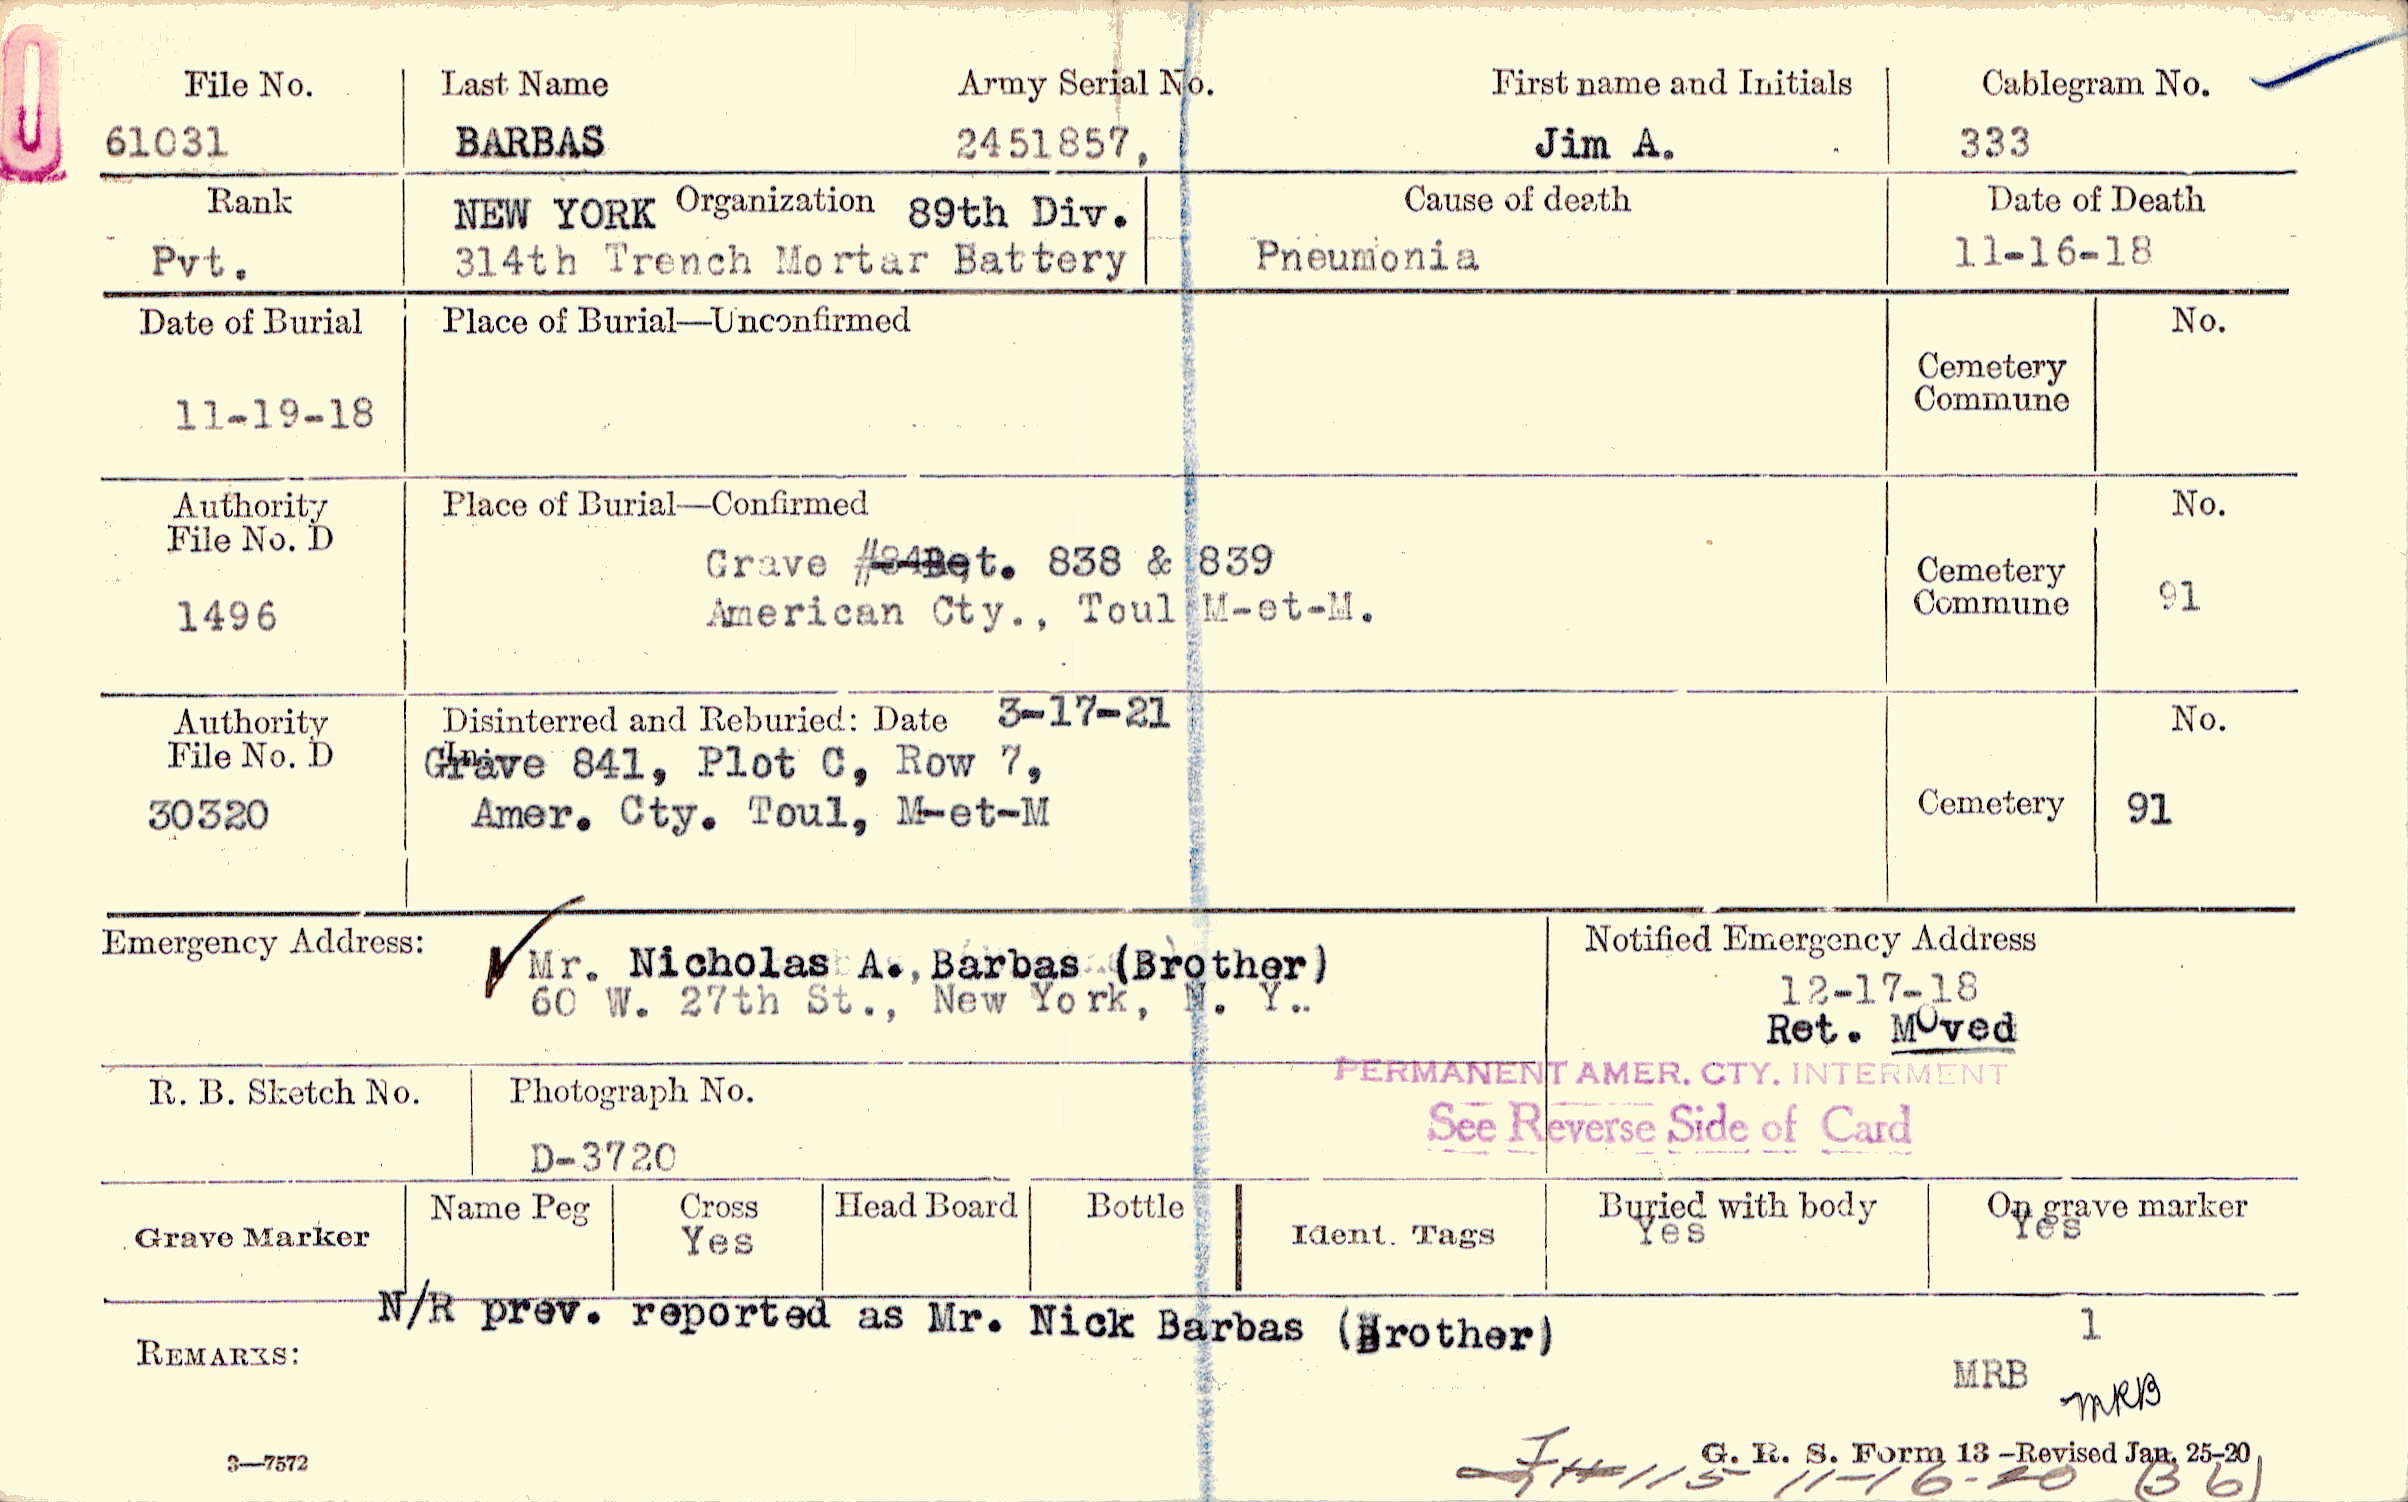 File No. Last Name Army Serial No. First name and Initials Cablegram No.
61031 BARBAS 2451857, Jim A. 333
Rank NEW YORK Organization 89th Div. Cause of death Date of Death
Pvt. 314th Trench Mortar Battery Pneumonia 11-16-18
Date of Burial Place of Burial—Unconfirmed No.
Cemetery
Commune
11-19-18
Authority Place of Burial—Confirmed No.
File No. D
Grave # Bet. 838 & 839
Cemetery
Commune 91
1496 American Cty., Toul M-et-M.
Authority Disinterred and Reburied: Date 3-17-21 No.
File No. D In:
Grave 841, Plot C, Row 7,
30320 Amer. Cty. Toul, M-et-M Cemetery 91
Emergency Address: Notified Emergency Address
Mr. Nicholas A., Barbas (Brother)
60 W. 27th St., New York, N. Y..
12-17-18
Ret. Moved
PERMANENT AMER. CTY. INTERMENT
See Reverse Side of Card
R. B. Sketch No. Photograph No.
D-3720
Grave Marker Name Peg Cross Head Board Bottle Ident. Tags Buried with body On grave marker
Yes Yes Yes
N/R prev. reported as Mr. Nick Barbas (Brother) 1
REMARKS:
MRB MRB
3—7572 G. R. S. Form 13 —Revised Jan. 25-20
115 11-16-20 (36)